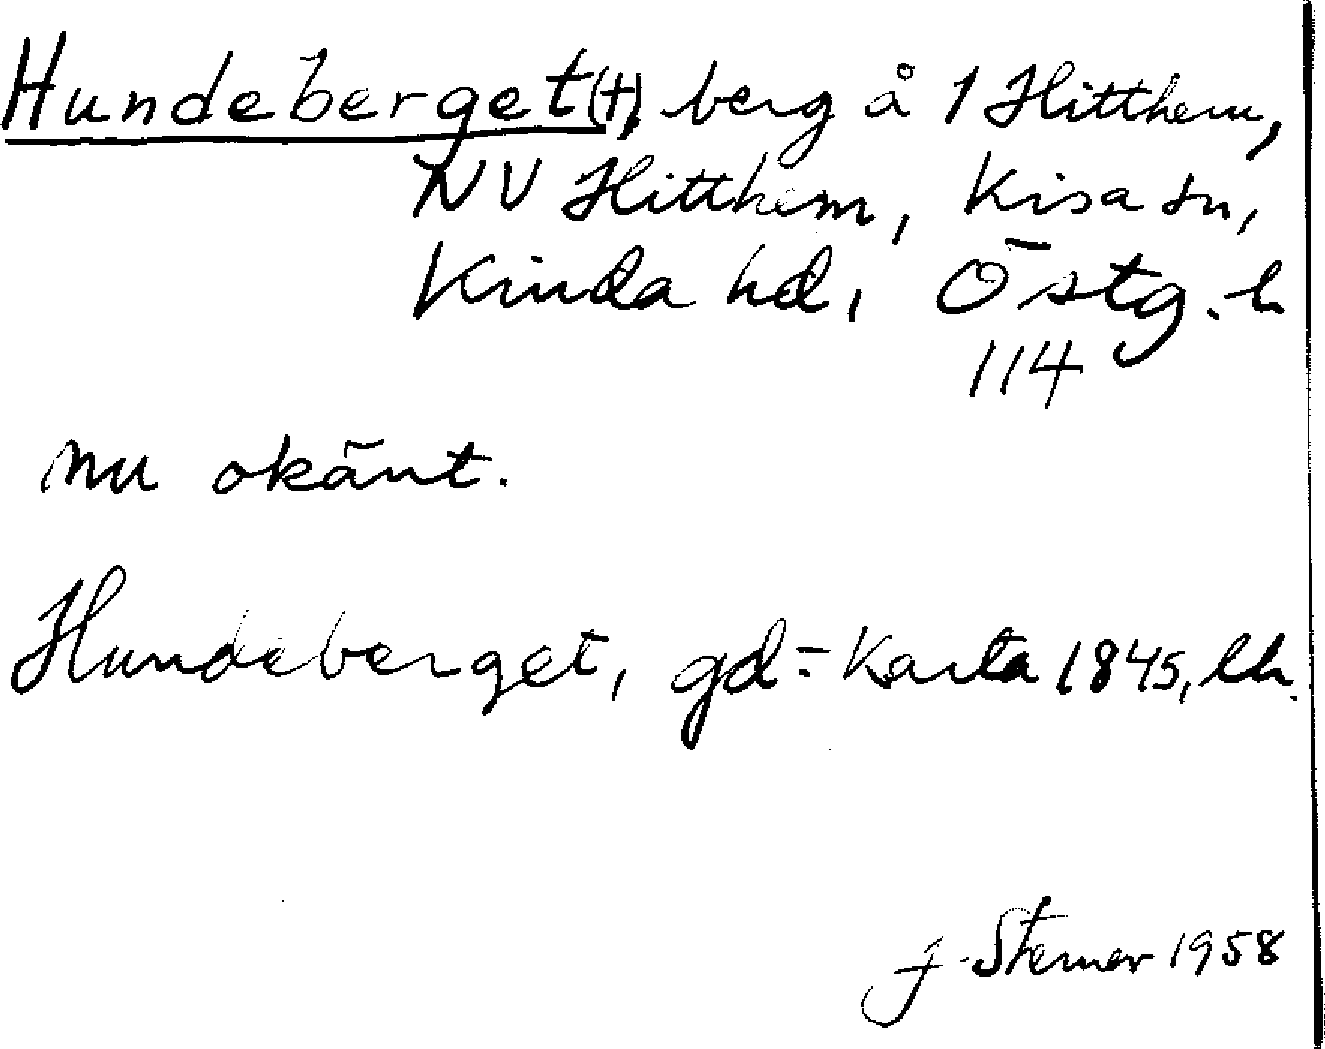 Hundeberget(†), berg å 1 Hitthem,
NV Hitthem, Kisa sn,
Kinda hd, Östg. l.
114
nu okänt.
Hundeberget, gd-karta 1845, lk.
J. Sterner 1958